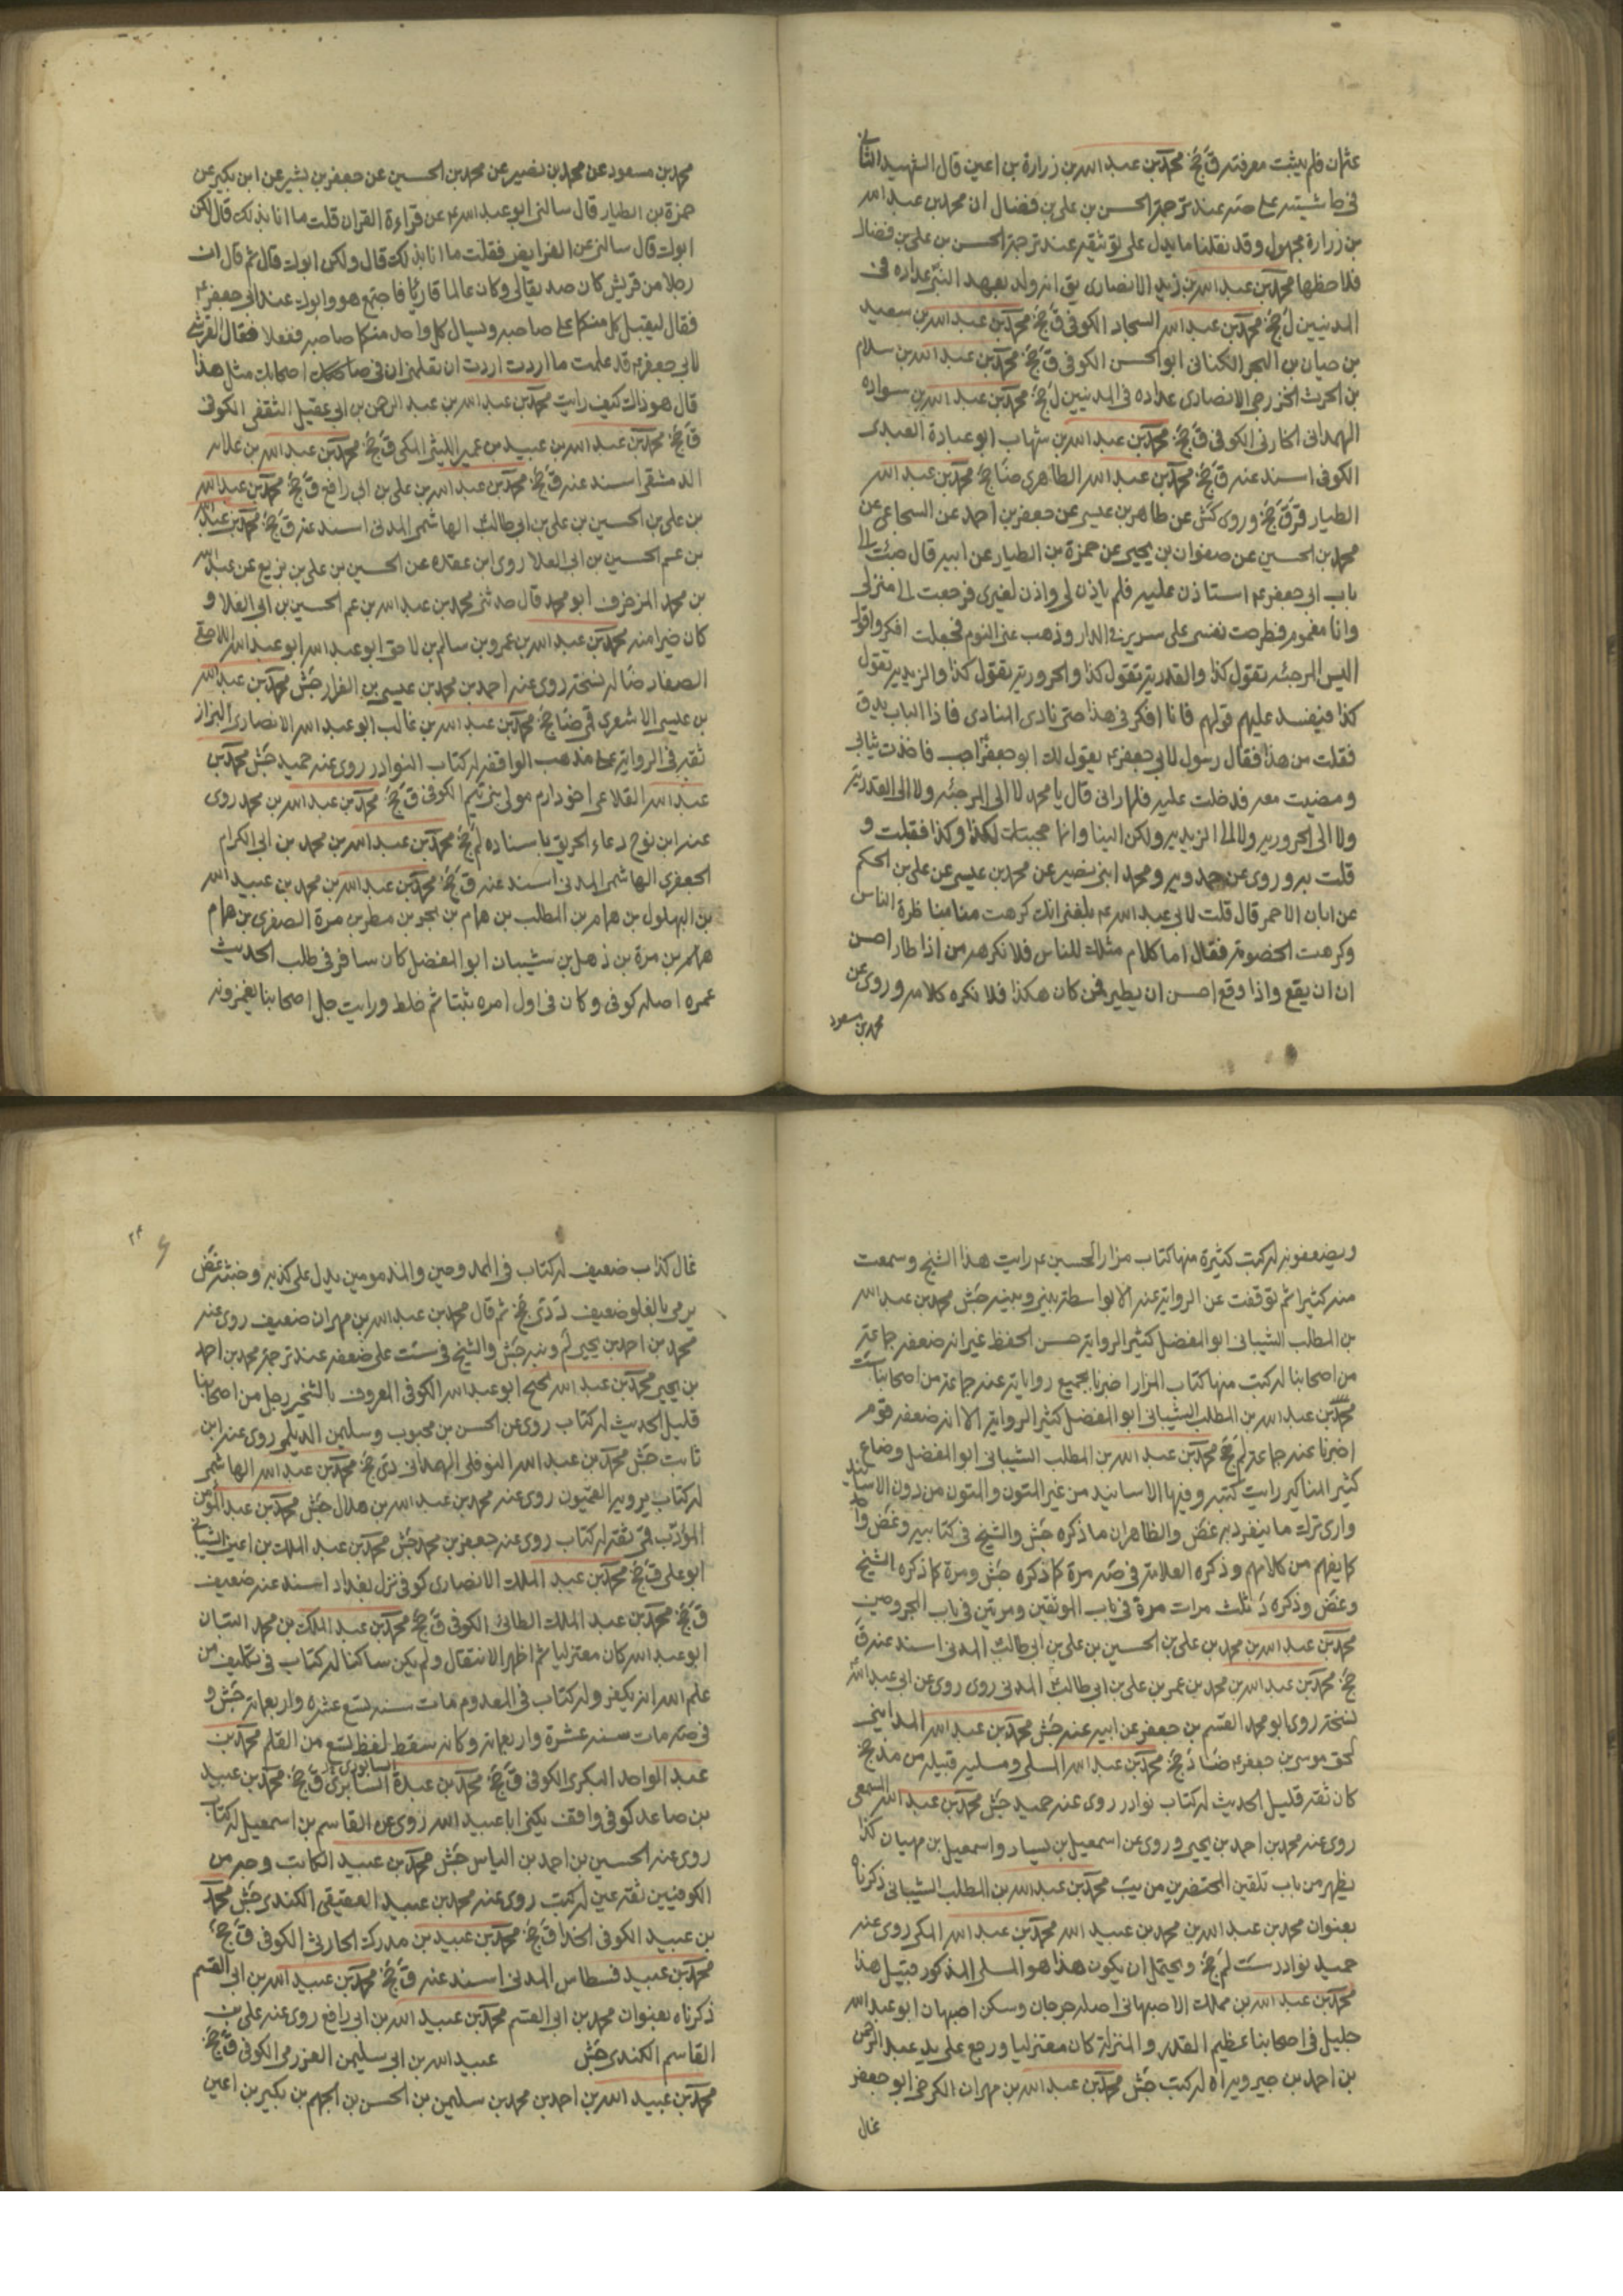 عثمان فلم يثبت معرفته ق جخ محمد بن عبد الله بن زرارة بن اعين قال الشهيد الثاني
في حاشيته على صه عند ترجمة الحسن بن علي بن فضال ان محمد بن عبد الله
بن زرارة مجهول وقد نقلنا ما يدل على توثيقه عند ترجمة الحسن بن علي بن فضال
فلاحظها محمد بن عبد الله بن زيد الانصارى يق انه ولد بعهد النبي عداده في
المدنيين ل جخ محمد بن عبد الله السجاد الكوفى ق جخ محمد بن عبد الله بن سعيد
بن حيان بن ابجر الكنانى ابو الحسن الكوفى ق جخ محمد بن عبد الله بن سلام
بن الحرث الخزرجى الانصارى عداده في المدنيين ل جخ محمد بن عبد الله بن سواده
الهمدانى الخارفى الكوفى ق جخ محمد بن عبد الله بن شهاب ابو عبادة العبدى
الكوفى اسند عنه ق جخ محمد بن عبد الله الطاهرى ضا جخ محمد بن عبد الله
الطيار قر ق جخ وروى كش عن طاهر بن عيسى عن جعفر بن احمد عن السجاعى عن
محمد بن الحسين عن صفوان بن يحيى عن حمزة بن الطيار عن ابيه قال جئت الى
باب ابى جعفر ع استاذن عليه فلم ياذن لى واذن لغيرى فرجعت الى منزلى
وانا مغموم فطرحت نفسى على سرير فى الدار وذهب عنى النوم فجعلت افكر واقول
اليس المرجئه تقول كذا والقدرية تقول كذا والحرورية تقول كذا والزيدية تقول
كذا فيفسد عليهم قولهم فانا افكر فى هذا حتى نادى المنادى فاذا الباب يدق
فقلت من هذا فقال رسول لابى جعفر ع يقول لك ابو جعفر اجب فاخذت ثيابى
ومضيت معه فدخلت عليه فلما رانى قال يا محمد لا الى المرجئه ولا الى القدرية
ولا الى الحرورية ولا الى الزيدية ولكن الينا وانما حجبتك لكذا وكذا فقبلت و
قلت به وروى عن حمدويه ومحمد ابنى نصير عن محمد بن عيسى عن على بن الحكم
عن ابان الاحمر قال قلت لابى عبد الله ع بلغنى انك كرهت منا مناظرة الناس
وكرهت الخصومة فقال اما كلام مثلك للناس فلا نكرهه من اذا طار احسن
ان يقع واذا وقع احسن ان يطير فمن كان هكذا فلا نكره كلامه وروى عن
محمد بن مسعود
محمد بن مسعود عن محمد بن نصير عن محمد بن الحسين عن جعفر بن بشير عن ابن بكير عن
حمزة بن الطيار قال سالنى ابو عبد الله ع عن قراءة القران قلت ما انا بذلك قال لكن
ابوك قال سالنى عن الفرايض فقلت ما انا بذلك قال ولكن ابوك قال ثم قال ان
رجلا من قريش كان صديقا لى وكان عالما قاريا فاجتمع هو وابوك عند ابى جعفر ع
فقال ليقبل كل منكما على صاحبه ويسال كل واحد منكما صاحبه ففعلا فقال القرشى
لابى جعفر ع قد علمت ما اردت اردت ان تعلمنى ان فى اصحابك مثل هذا
قال هو ذاك كيف رايت محمد بن عبد الله بن عبد الرحمن بن ابى عقيل الثقفى الكوفى
ق جخ محمد بن عبد الله بن عبيد بن عمير الليثى المكى ق جخ محمد بن عبد الله بن علاثه
الدمشقى اسند عنه ق جخ محمد بن عبد الله بن على بن ابى رافع ق جخ محمد بن عبد الله
بن على بن الحسين بن على بن ابى طالب الهاشمى المدنى اسند عنه ق جخ محمد بن عبد الله
بن عم الحسين بن ابى العلا روى ابن عقده عن الحسين بن على بن بزيع عن عبد الله
بن محمد المزخرف ابو محمد قال حدثنى محمد بن عبد الله بن عم الحسين بن ابى العلا و
كان خيرا منه محمد بن عبد الله بن عمرو بن سالم بن لاحق ابو عبد الله ابو عبد الله اللاحقى
الصفار ضا له نسخة روى عنه احمد بن محمد بن عيسى بن الغراد جش محمد بن عبد الله
بن عيسى الاشعرى قمى ضا جخ محمد بن عبد الله بن غالب ابو عبد الله الانصارى البزاز
ثقة فى الرواية على مذهب الواقفه له كتاب النوادر روى عنه حميد جش محمد بن
عبد الله القلاء اخو دارم مولى بنى تميم الكوفى ق جخ محمد بن عبد الله بن محمد روى
عنه ابن نوح دعاء الحريق باسناده لم جخ محمد بن عبد الله بن محمد بن ابى الكرام
الجعفرى الهاشمى المدنى اسند عنه ق جخ محمد بن عبد الله بن محمد بن عبيد الله
بن البهلول بن همام بن المطلب بن همام بن بحر بن مطر بن مرة الصغرى بن همام
همام بن مرة بن ذهل بن شيبان ابو المفضل كان سافر فى طلب الحديث
عمره اصله كوفى وكان فى اول امره ثبتا ثم خلط ورايت جل اصحابنا يغمزونه
ويضعفونه له كتب كثيرة منها كتاب مزار الحسين ع رايت هذا الشيخ وسمعت
منه كثيرا ثم توقفت عن الرواية عنه الا بواسطة بينى وبينه جش محمد بن عبد الله
بن المطلب الشيبانى ابو المفضل كثير الرواية حسن الحفظ غير انه ضعفه جماعة
من اصحابنا له كتب منها كتاب المزار اخبرنا بجميع رواياته عنه جماعة من اصحابنا ست
محمد بن عبد الله بن المطلب الشيبانى ابو المفضل كثير الرواية الا انه ضعفه قوم
اخبرنا عنه جماعة لم جخ محمد بن عبد الله بن المطلب الشيبانى ابو المفضل وضاع
كثير المناكير رايت كتبه وفيها الاسانيد من غير المتون والمتون من دون الاسانيد
وارى ترك ما ينفرد به غض والظاهر ان ما ذكره جش والشيخ فى كتابيه وغض واحد
كما يفهم من كلامهم وذكره العلامة فى صه مرة كما ذكره جش ومرة كما ذكره الشيخ
وغض وذكره د ثلث مرات مرة فى باب الموثقين ومرتين فى باب المجروحين
محمد بن عبد الله بن محمد بن على بن الحسين بن على بن ابى طالب المدنى اسند عنه ق
جخ محمد بن عبد الله بن محمد بن عمر بن على بن ابى طالب المدنى روى روى عن ابى عبد الله
نسخة روى ابو محمد القسم بن جعفر عن ابيه عنه جش محمد بن عبد الله المداينى
لحق موسى بن جعفر ع ضا د جخ محمد بن عبد الله المسلى ومسليه قبيله من مذحج
كان ثقة قليل الحديث له كتاب نوادر روى عنه حميد جش محمد بن عبد الله السمعى
روى عنه محمد بن احمد بن يحيى وروى عن اسمعيل بن يسار واسمعيل بن مهران كذا
يظهر من باب تلقين المحتضرين من يب محمد بن عبد الله بن المطلب الشيبانى ذكرناه
بعنوان محمد بن عبد الله بن محمد بن عبيد الله محمد بن عبد الله المكى روى عنه
حميد نوادر ست لم جخ ويحتمل ان يكون هذا هو المسلى المذكور قبيل هذا
محمد بن عبد الله بن مملك الاصبهانى اصله جرجان وسكن اصبهان ابو عبد الله
جليل فى اصحابنا عظيم القدر والمنزلة كان معتزليا ورجع على يد عبد الرحمن
بن احمد بن جبرويه ره له كتب جش محمد بن عبد الله بن مهران الكرخى ابو جعفر
غال
غال كذاب ضعيف له كتاب فى الممدوحين والمذمومين يدل على كذبه وخبثه غض
يرمى بالغلو ضعيف د دى جخ ثم قال محمد بن عبد الله بن مهران ضعيف روى عنه
محمد بن احمد بن يحيى لم ونبه جش والشيخ فى ست على ضعفه عند ترجمة محمد بن احمد
بن يحيى محمد بن عبد الله نجيح ابو عبد الله الكوفى المعروف بالشخير رجل من اصحابنا
قليل الحديث له كتاب روى عن الحسن بن محبوب وسليمن الديلمى روى عنه ابن
ثابت جش محمد بن عبد الله النوفلى الهمدانى دى جخ محمد بن عبد الله الهاشمى
له كتاب يرويه القميون روى عنه محمد بن عبد الله بن هلال جش محمد بن عبد المؤمن
المؤدب قمى ثقة له كتاب روى عنه جعفر بن محمد جش محمد بن عبد الملك بن اعين الشيبانى
ابو على ق جخ محمد بن عبد الملك الانصارى كوفى نزل بغداد اسند عنه ضعيف
ق جخ محمد بن عبد الملك الطائى الكوفى ق جخ محمد بن عبد الملك بن محمد التبان
ابو عبد الله كان معتزليا ثم اظهر الانتقال ولم يكن ساكنا له كتاب فى تكليف من
علم الله انه يكفر وله كتاب فى المعدوم مات سنه تسع عشره واربعمائة جش و
فى صه مات سنه عشرة واربعمائة وكانه سقط لفظ تسع من القلم محمد بن
عبد الواحد البكرى الكوفى ق جخ محمد بن عبدة السابرى ق جخ محمد بن عبيد
بن صاعد كوفى واقف يكنى ابا عبيد الله روى عنه القاسم بن اسمعيل له كتاب
روى عنه الحسين بن احمد بن الياس جش محمد بن عبيد الكاتب وجه من
الكوفيين ثقة عين له كتب روى عنه محمد بن عبيد العقيقى الكندى جش محمد
بن عبيد الكوفى الحذا ق جخ محمد بن عبيد بن مدرك الحارثى الكوفى ق جخ
محمد بن عبيد قسطاس المدنى اسند عنه ق جخ محمد بن عبيد الله بن ابى القسم
ذكرناه بعنوان محمد بن ابى القسم محمد بن عبيد الله بن ابى رافع روى عنه على بن
القاسم الكندى جش عبيد الله بن ابى سليمن العزرمى الكوفى ق جخ
محمد بن عبيد الله بن احمد بن محمد بن سليمن بن الحسن بن الجهم بن بكير بن اعين